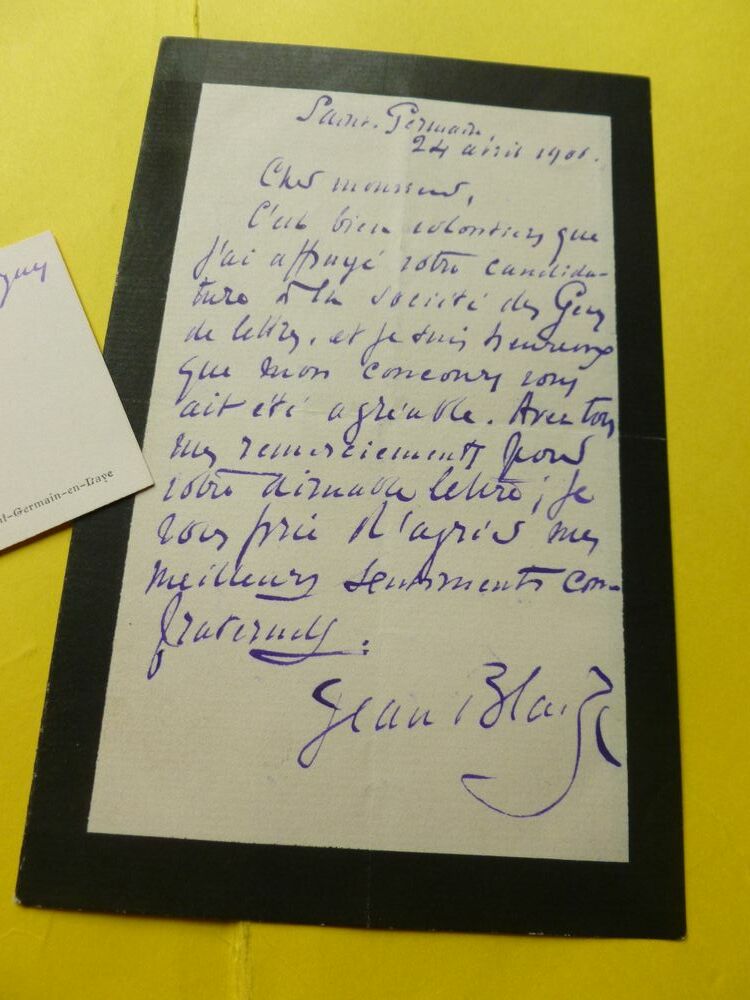 Saint-Germain,
24 avril 1901.
Cher monsieur,
C'est bien volontiers que
j'ai appuyé votre candida-
ture à la société des Gens
de lettres, et je suis heureux
que mon concours vous
ait été agréable. Avec tous
mes remerciements pour
votre aimable lettre, je
vous prie d'agréer mes
meilleurs sentiments con-
fraternels.
Jean Blaize
nt-Germain-en-Laye